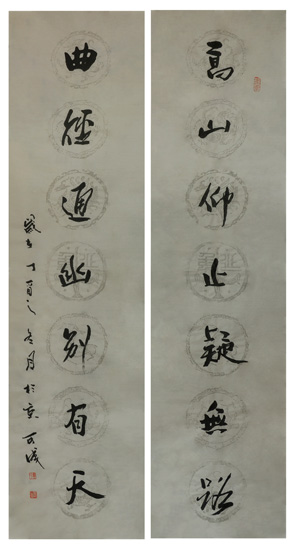 高山仰止疑無路
曲徑通幽別有天
歲在丁酉之冬月於京